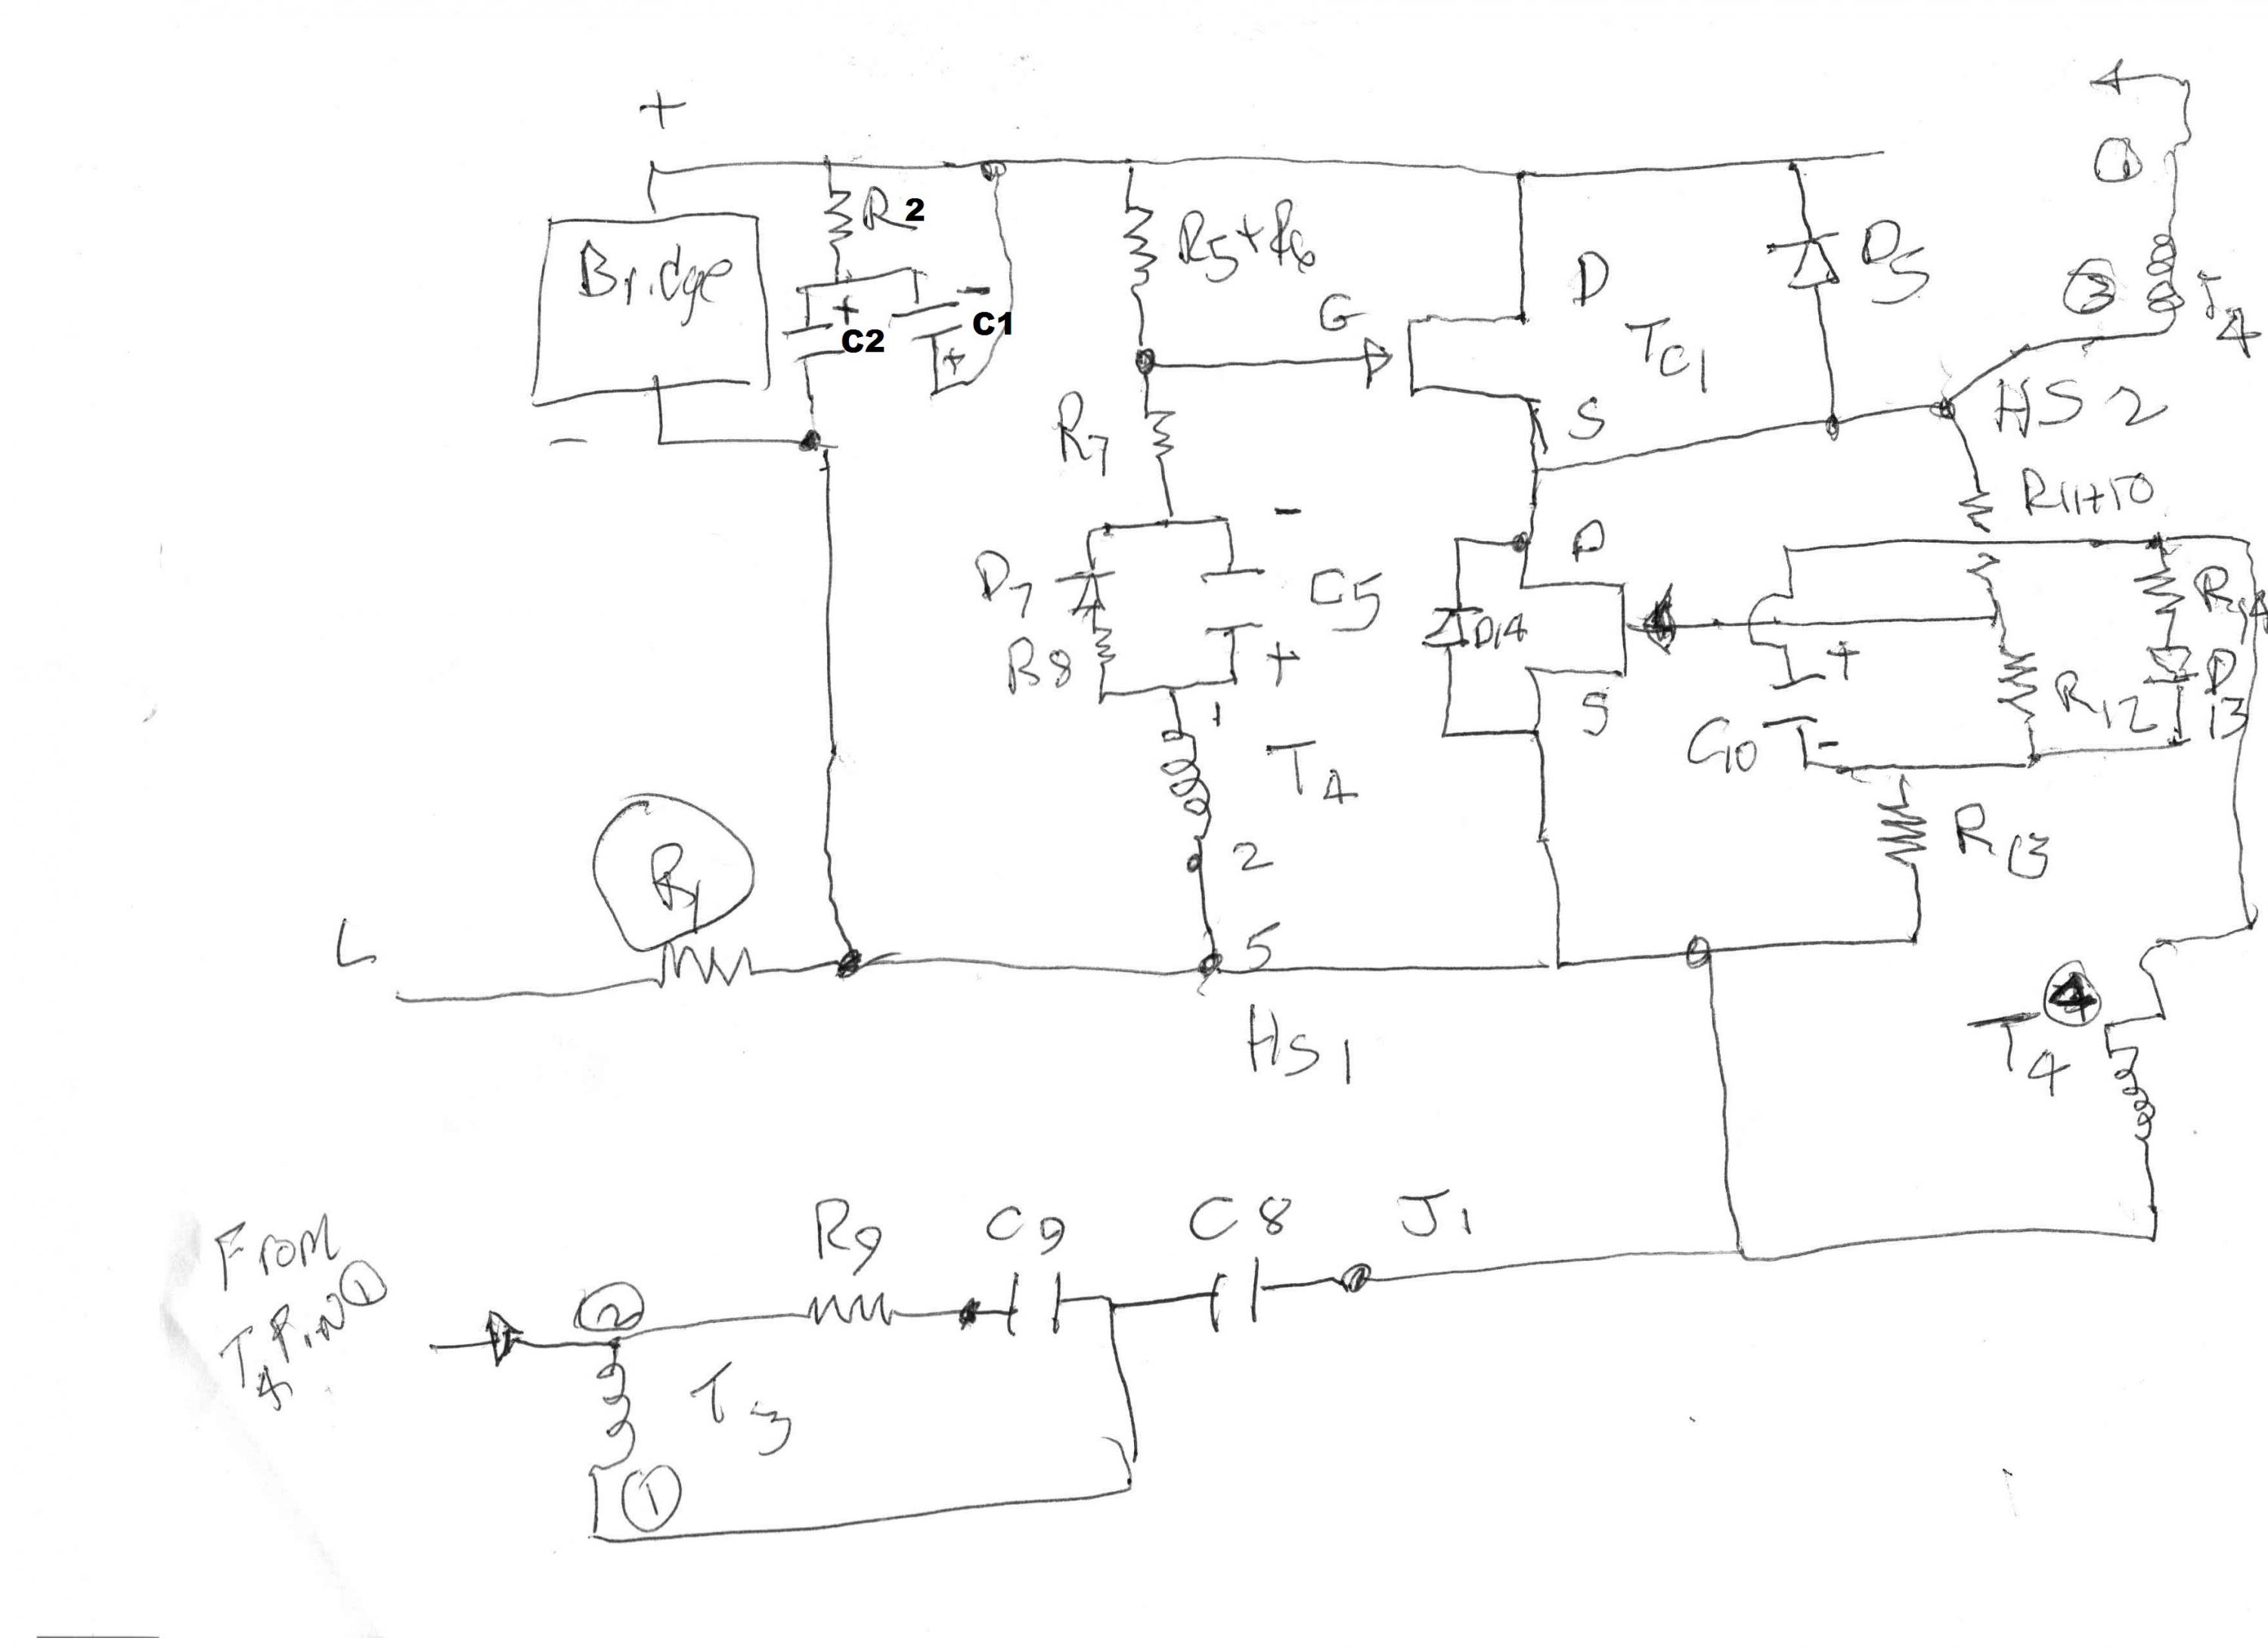 +
Bridge
-
R2
+
C2
-
C1
+
R5+R6
G
D
TC1
S
D5
①
②
T4
HS2
R11+10
R7
-
D7
C5
R8
+
1
T4
2
5
HS1
D
D14
S
+
C10
-
R12
D13
R13
④
T4
L
R1
From
T4 PIN ①
②
R9
C9
C8
J1
T3
①